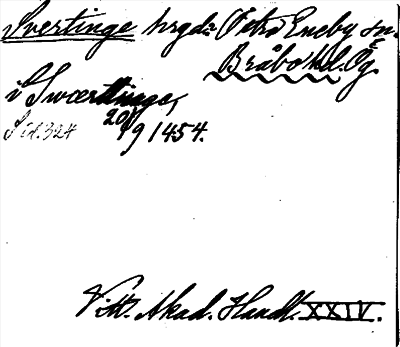 Svertinge hrgd: Östra Eneby sn.
Bråbo hd. Ög.
i Swærtinge,
Sid. 324 20/9 1454.
Vitt. Akad. Handl. XXIV.